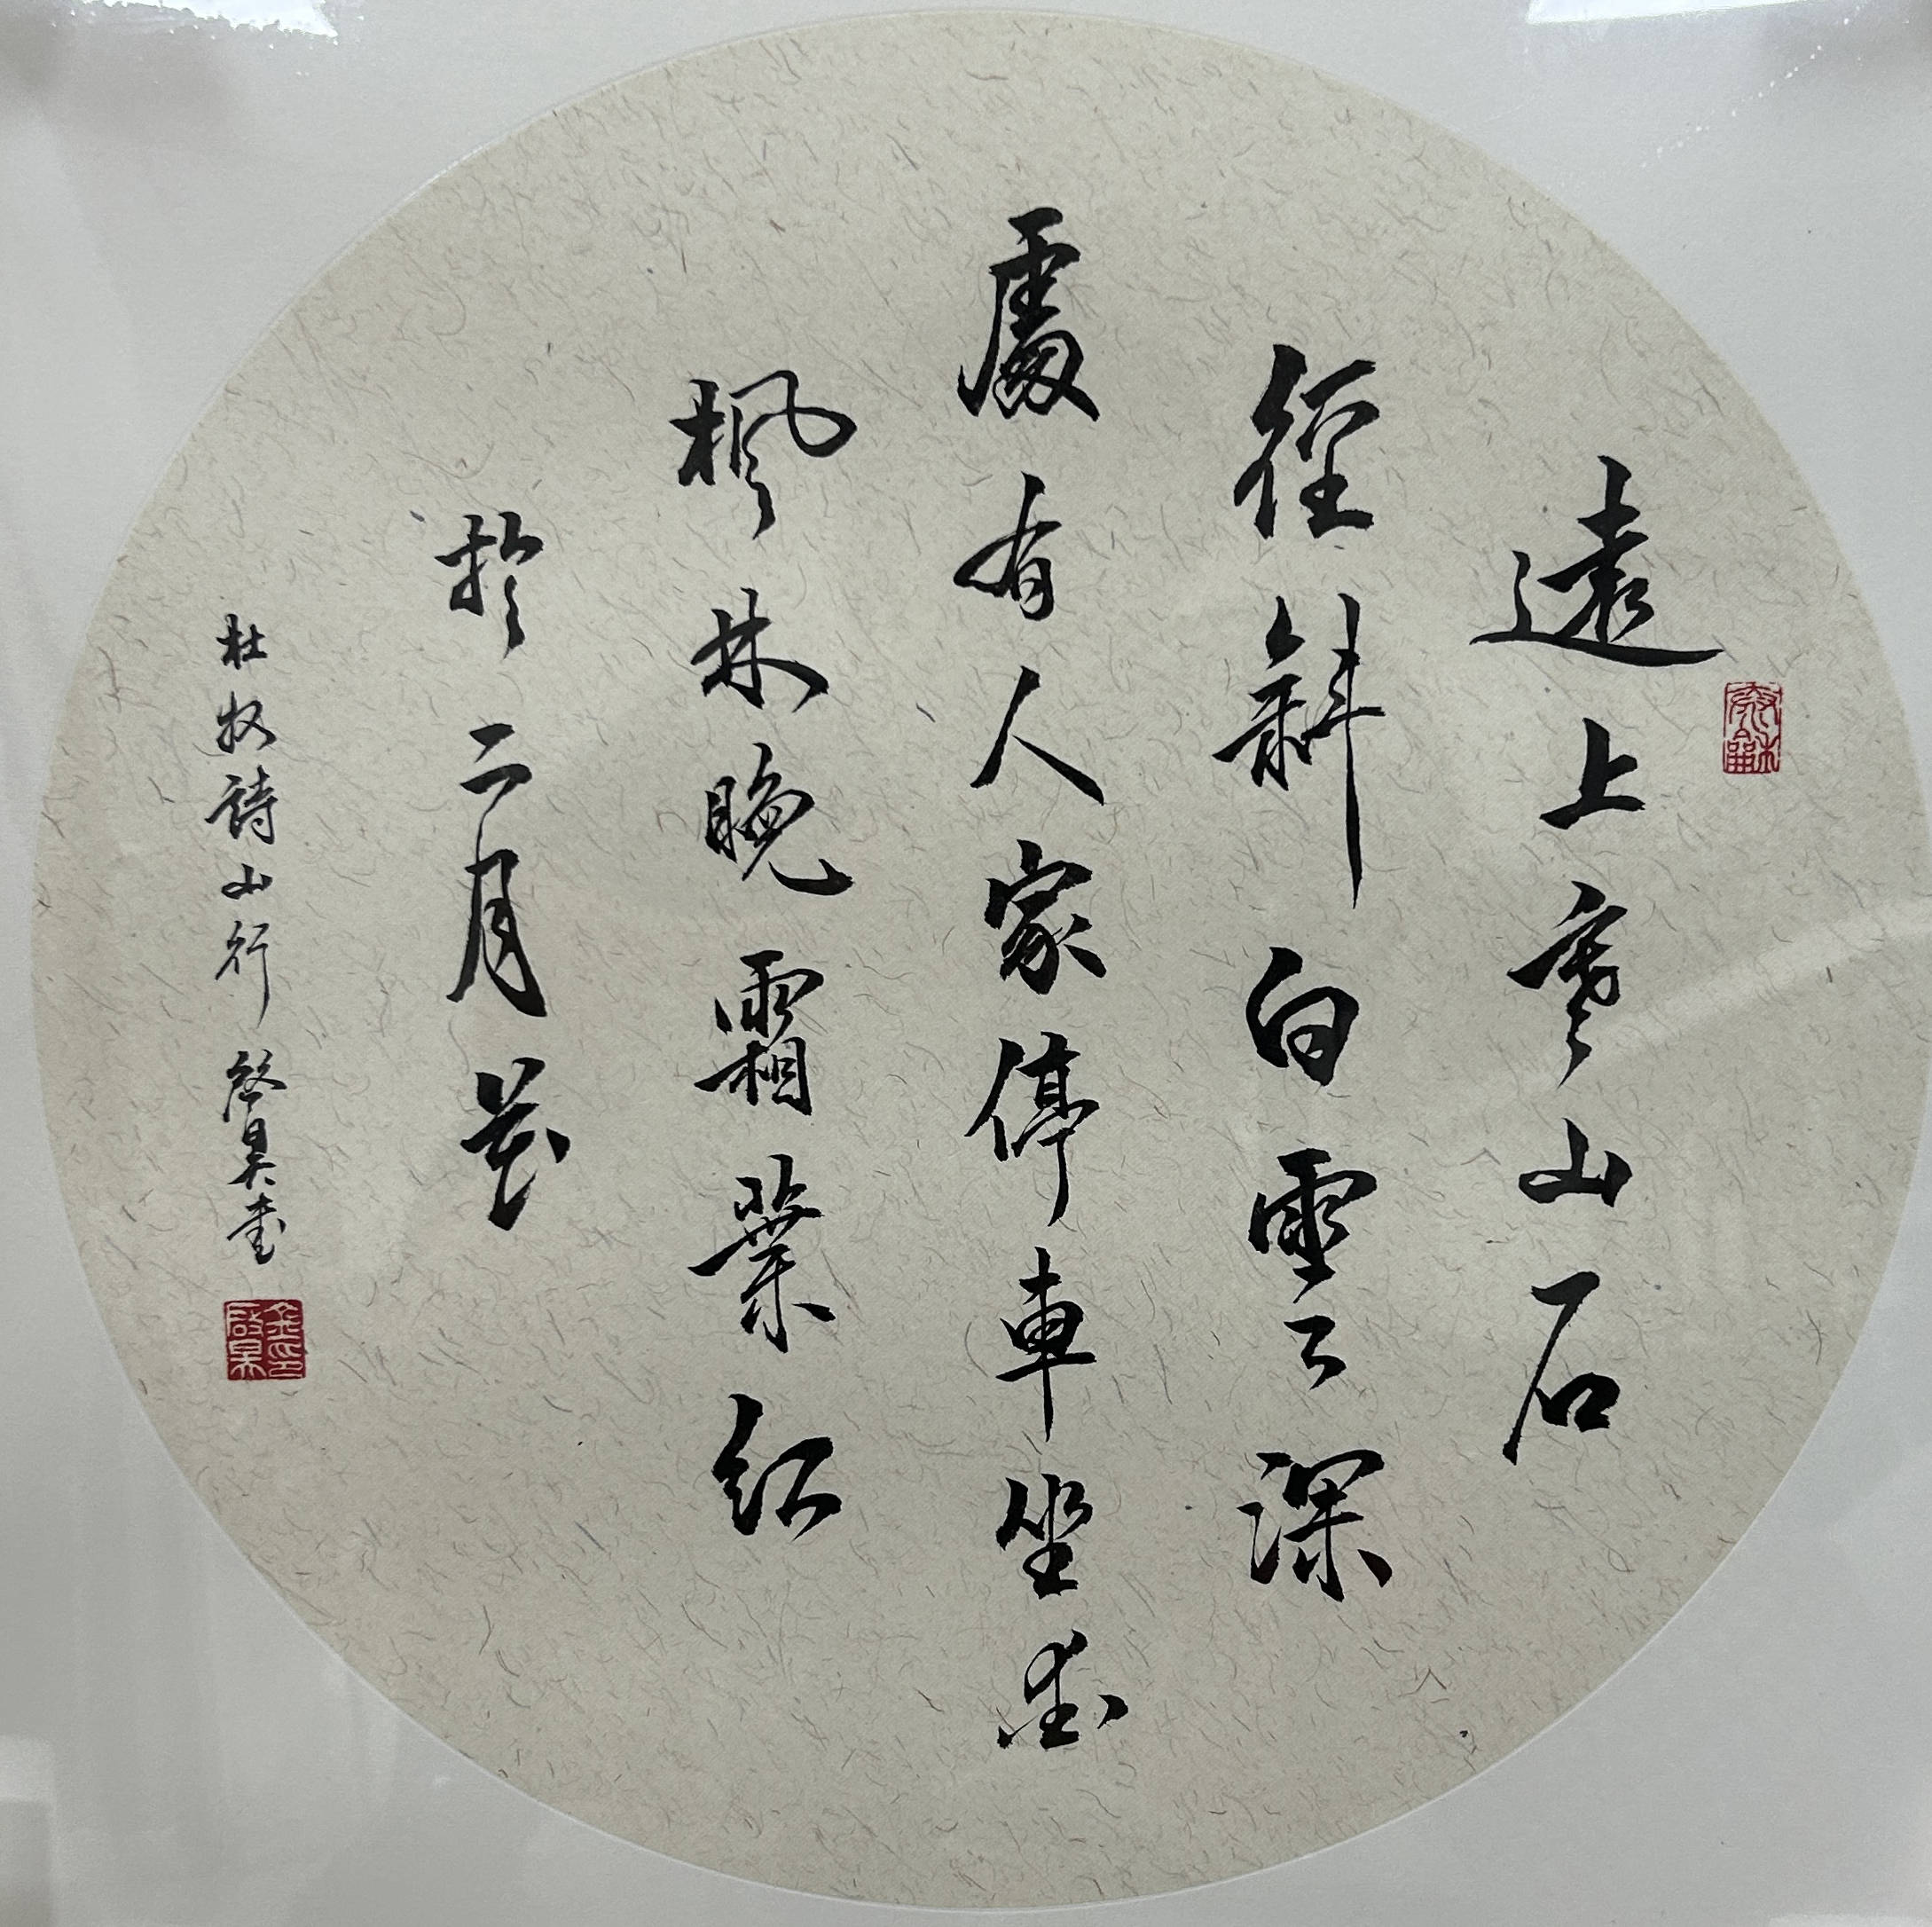 遠上寒山石
徑斜白雲深
處有人家停車坐愛
楓林晚霜葉紅
於二月花
杜牧詩山行 啟昊書